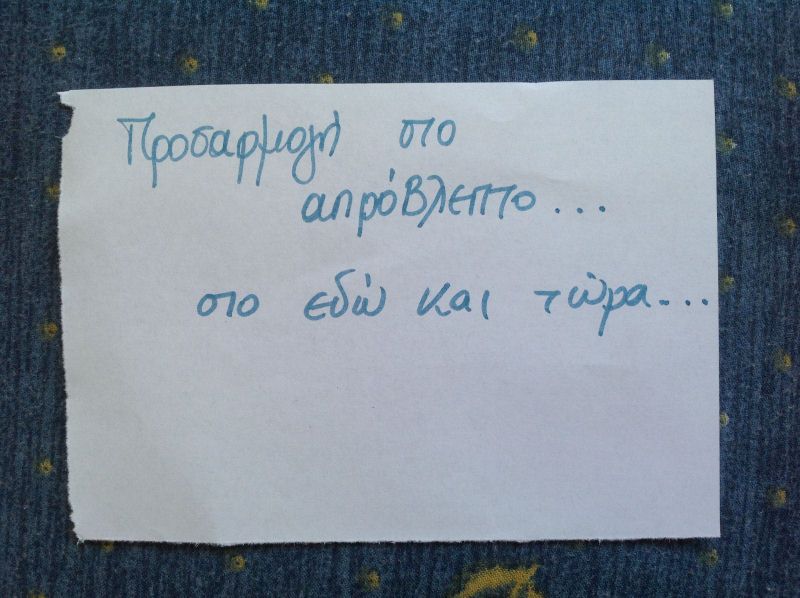 Προσαρμογή στο
απρόβλεπτο...
στο εδώ και τώρα...